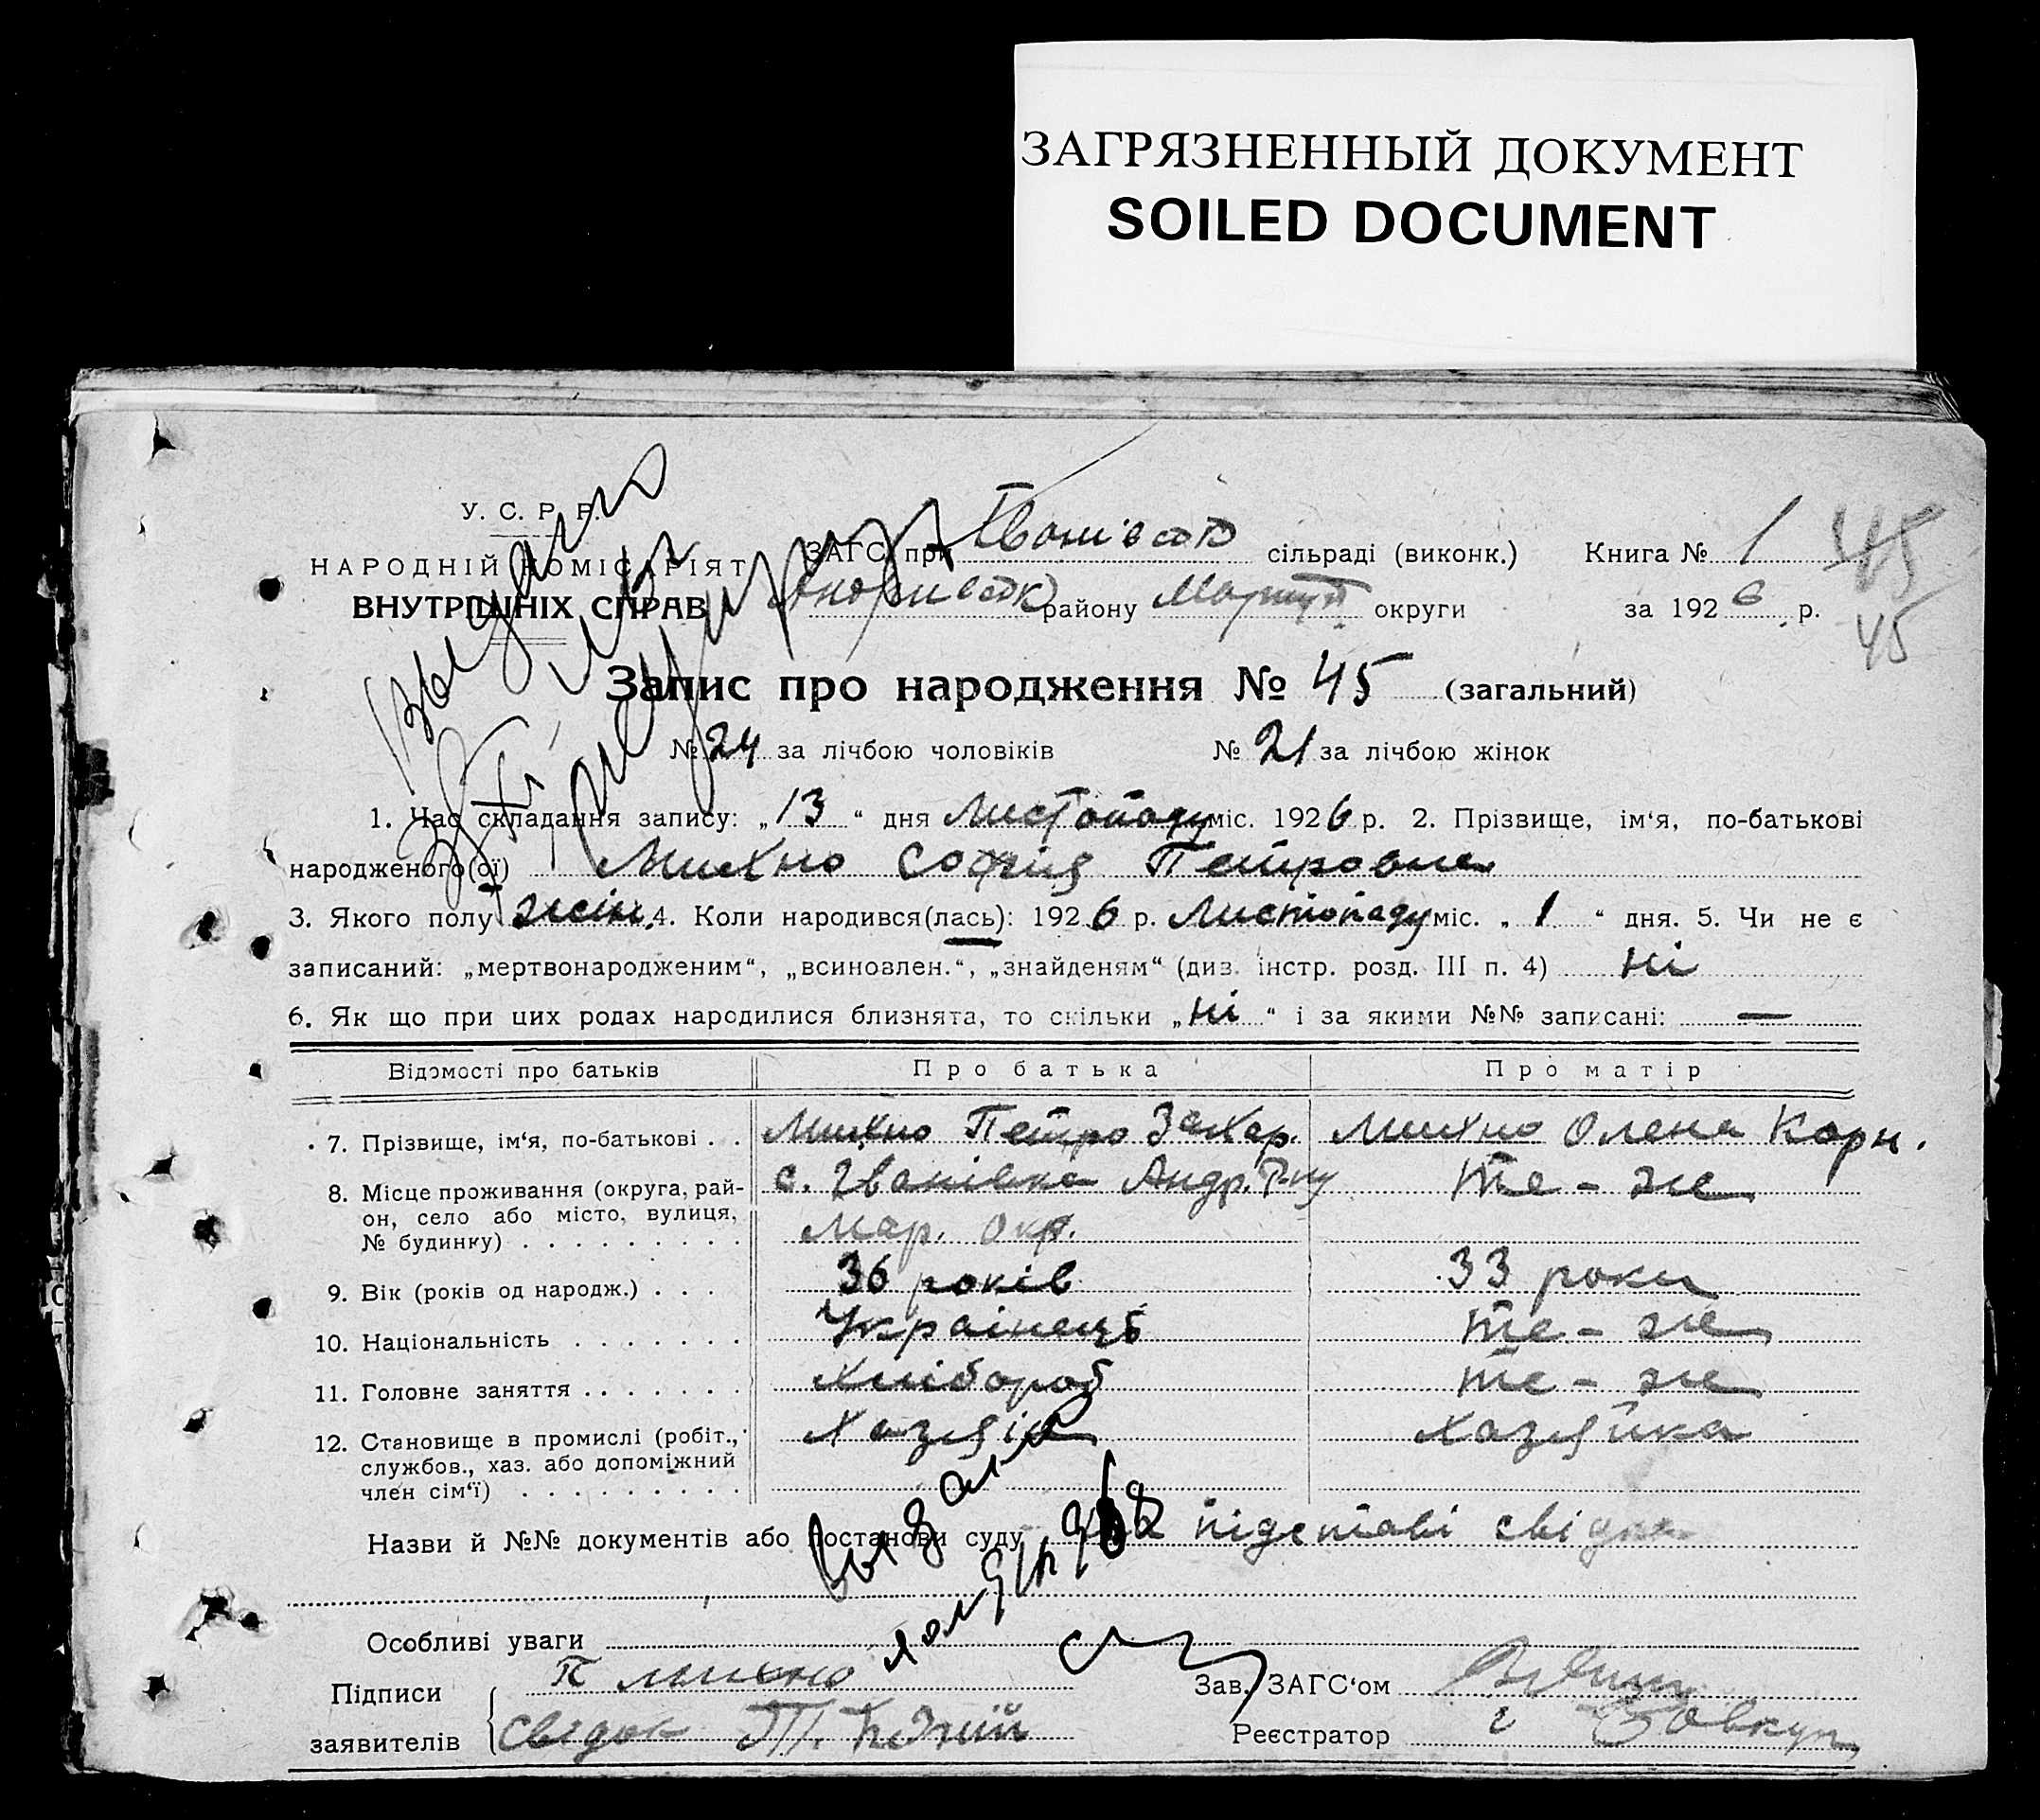 ЗАГРЯЗНЕННЫЙ ДОКУМЕНТ
SOILED DOCUMENT
У. С. Р. Р.
НАРОДНІЙ КОМІСАРІЯТ
ВНУТРІШНІХ СПРАВ
ЗАГС при Іванівськ сільраді (виконк.) Книга № 1 45
Андриевськ району Маріуп округи за 1926 р. 45
Запис про народження № 45 (загальний)
№ 24 за лічбою чоловіків № 21 за лічбою жінок
1. Час складання запису: „13“ дня Листопаду міс. 1926 р. 2. Прізвище, ім‘я, по-батькові
народженого(ої) Михно София Петровна
3. Якого полу жін. 4. Коли народився(лась): 1926 р. Листопаду міс. „1“ дня. 5. Чи не є
записаний: „мертвонародженим“, „всиновлен.“, „знайденям“ (див. інстр. розд. III п. 4) ні
6. Як що при цих родах народилися близнята, то скільки „ні“ і за якими №№ записані: —
Відомості про батьків Про батька Про матір
7. Прізвище, ім‘я, по-батькові . . Михно Петро Захар. Михно Олена Корн.
8. Місце проживання (округа, рай- с. Іванівка Андр. Р-ну те - же
он, село або місто, вулиця,
№ будинку) Мар. окр.
9. Вік (років од народж.) . . . 36 років 33 роки
10. Національність Українець те - же
11. Головне заняття Хлібороб те - же
12. Становище в промислі (робіт., Хазяін Хазяйка
службов., хаз. або допоміжний
член сім‘ї)
Назви й №№ документів або постанови суду на підставі свідка
Особливі уваги
Підписи П Михно Зав. ЗАГС‘ом
заявителів Свідок Реєстратор
Выдано
Выдано